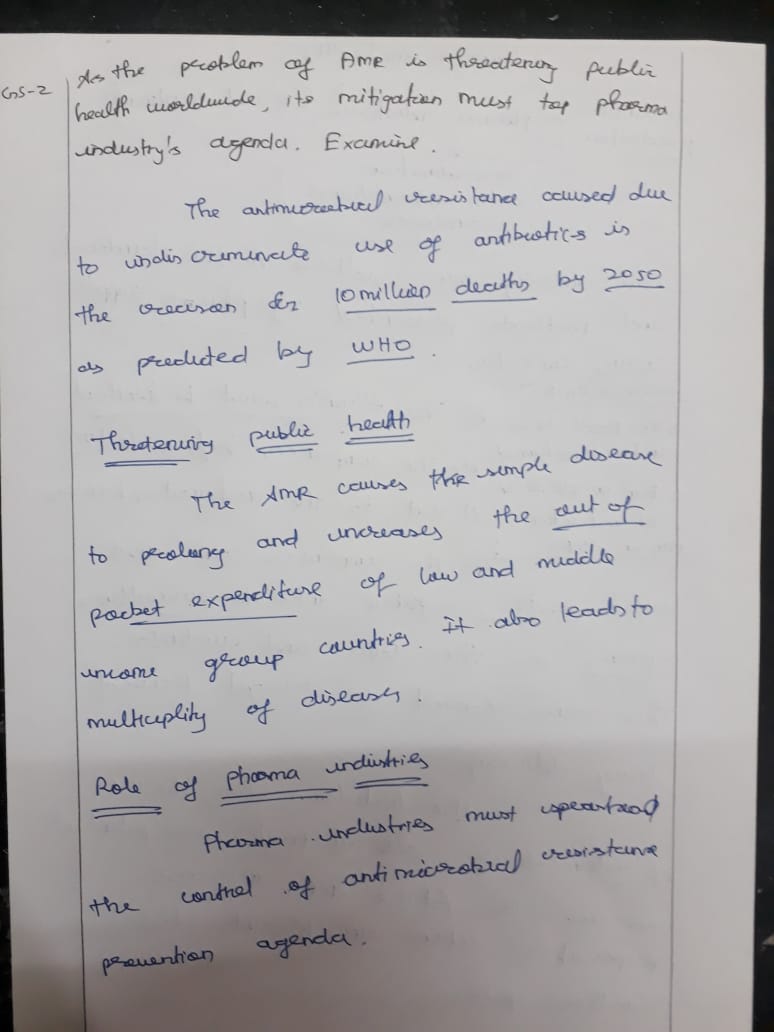 GS-2
As the problem of AMR is threatening public
health worldwide, its mitigation must top pharma
industry's agenda. Examine.
The antimicrobial resistance caused due
to indiscriminate use of antibiotics is
the reason for 10 million deaths by 2050
as predicted by WHO.
Thretening public health
The AMR causes the simple disease
to prolong and increases the out of
pocket expenditure of low and middle
income group countries. It also leads to
multiciplity of diseases.
Role of pharma industries
Pharma industries must spearhead
the control of antimicrobial resistance
prevention agenda.